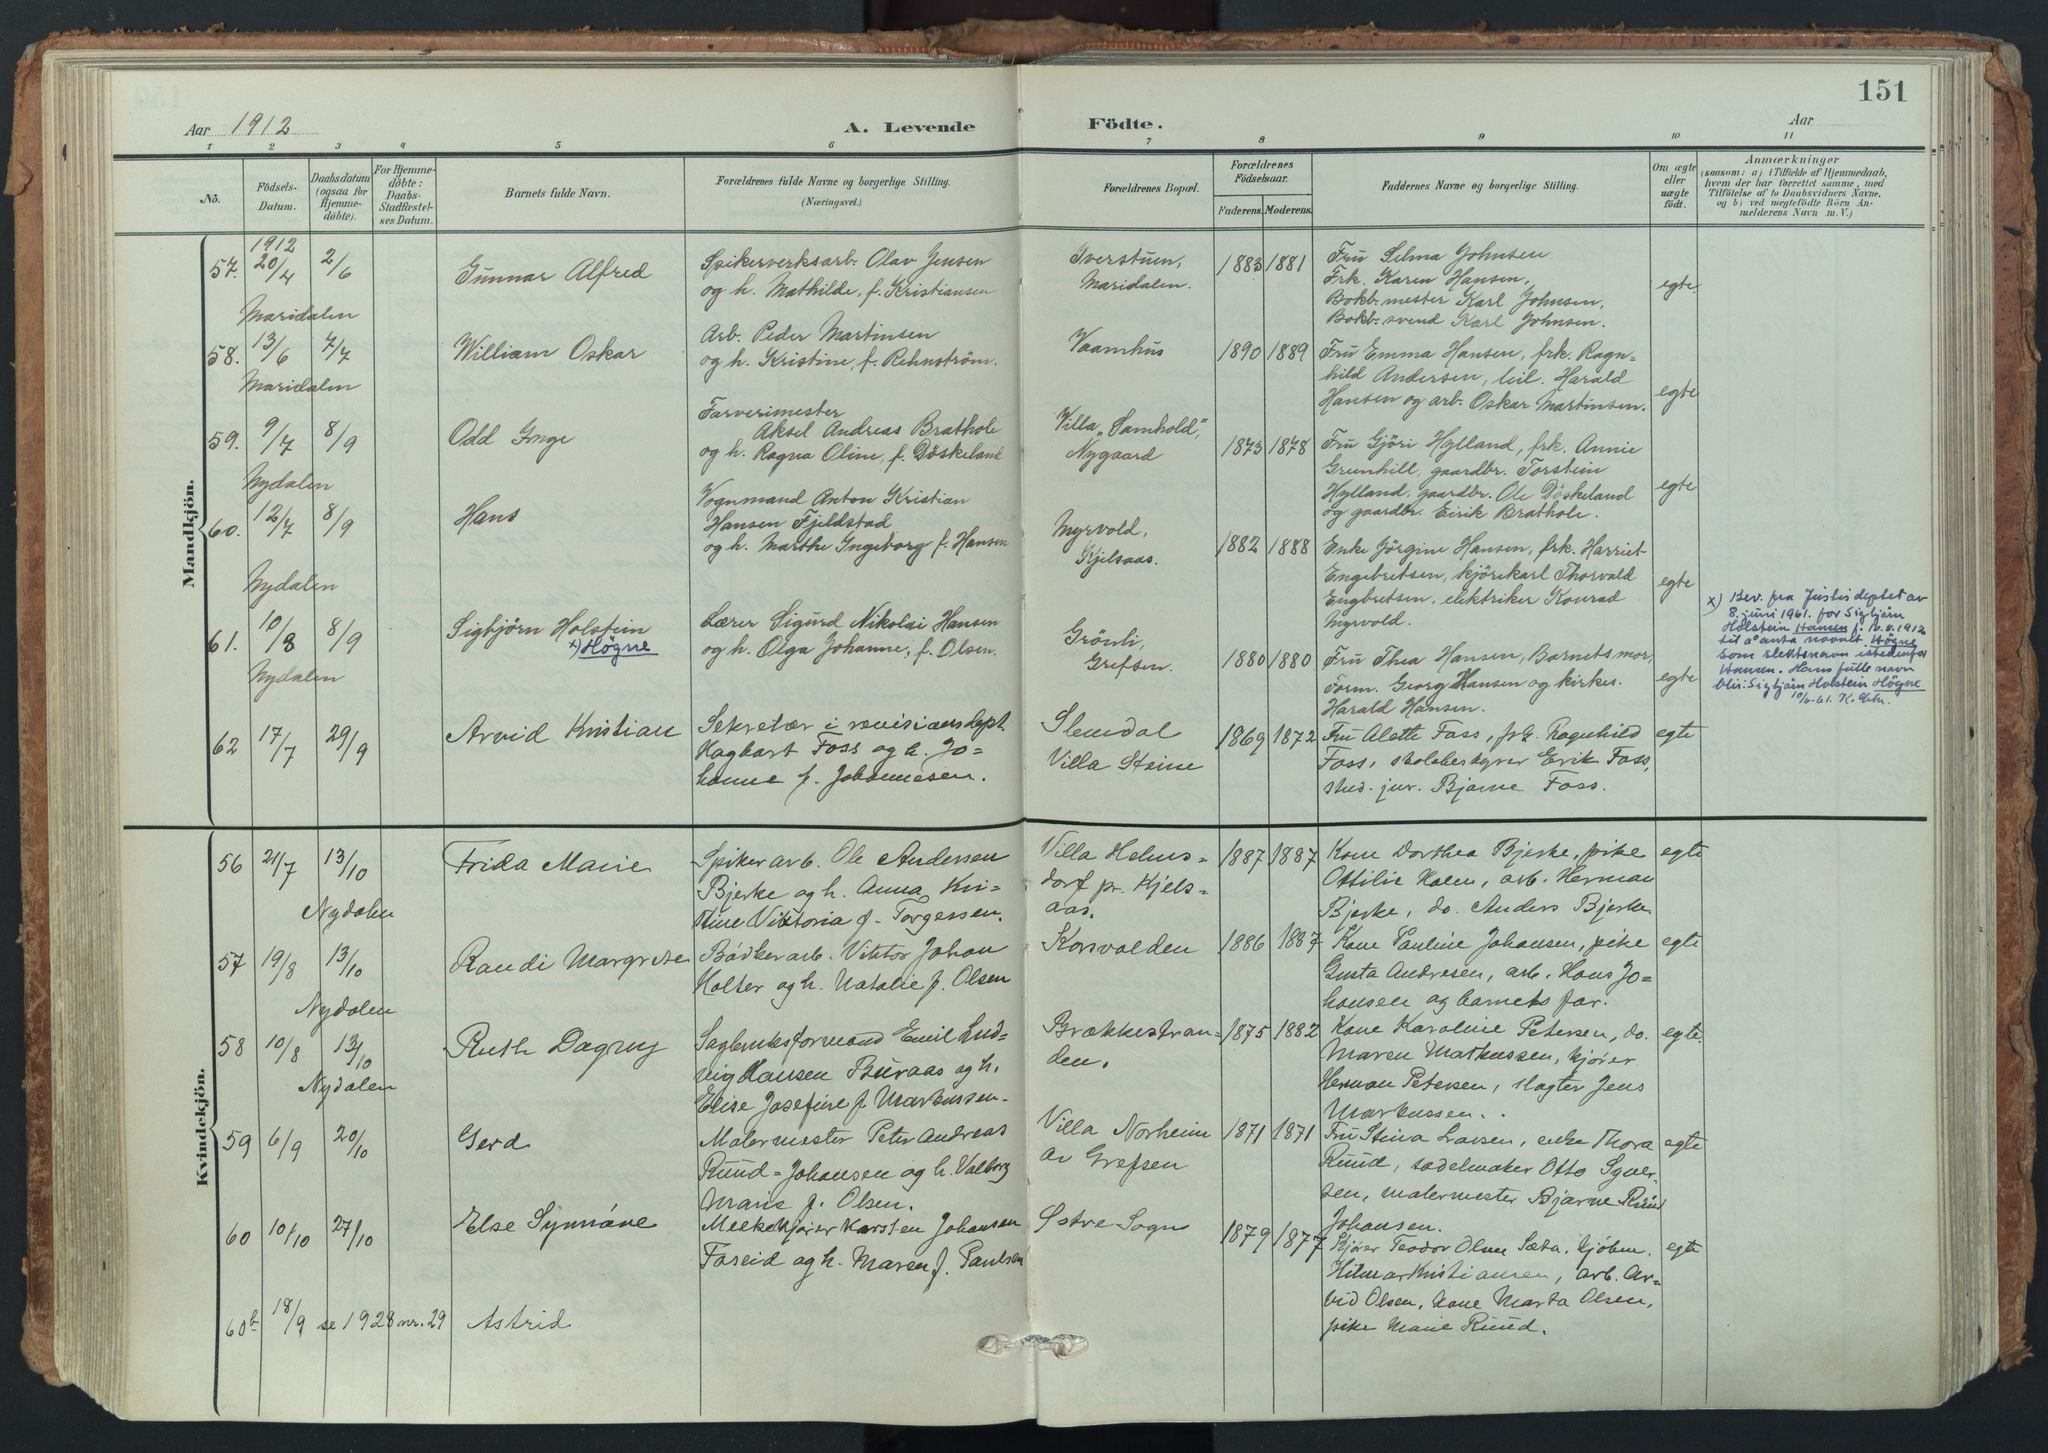 151
Aar 1912
A. Levende Födte.
Aar
1 2 3 4 5 6 7 8 9 10 11
No.
Födsels-Datum.
Daabsdatum (ogsaa for Hjemmedöbte).
For Hjemmedöbte: Daabs-Stadfæstelses Datum.
Barnets fulde Navn.
Forældrenes fulde Navne og borgerlige Stilling.
(Næringsvei.)
Forældrenes Bopæl.
Forældrenes Födselsaar.
Faderens. Moderens.
Faddernes Navne og borgerlige Stilling.
Om ægte eller uægte födt.
Anmærkninger
(saasom: a) i Tilfælde af Hjemmedaab,
hvem der har forrettet samme, med
Tilföielse af to Daabsvidners Navne,
og b) ved uægtefödte Börn An-
melderens Navn m. V.)
Mandkjön.
57. 1912 20/4 2/6 Gunnar Alfred
Maridalen
Spikerverksarb. Olav Jensen
og h. Mathilde, f. Kristiansen
Iverstuen,
Maridalen.
1883 1881
Fru Selma Johnsen
Frk. Karen Hansen,
Bokb. mester Karl Johnsen,
Bokb. svend Karl Johnsen.
egte
58. 13/6 7/7 William Oskar
Maridalen
Arb. Peder Martinsen
og h. Kristine, f. Rehnström.
Vaamhus
1890 1889
Fru Emma Hansen, frk. Ragn-
hild Andersen, löil. Harald
Hansen og arb. Oskar Martinsen.
egte
59. 9/7 8/9 Odd Inge
Nydalen
Farverimester
Aksel Andreas Brathole
og h. Ragna Oline, f. Döskeland
Villa "Samhold",
Nygaard
1873 1878
Fru Gjöri Hylland, frk. Annie
Grunhill, gaardbr. Torstein
Hylland, gaardbr. Ole Döskeland
og gaardbr. Eirik Brathole.
egte
60. 12/7 8/9 Hans
Nydalen
Vognmand Anton Kristian
Hansen Fjeldstad
og h. Marthe Ingeborg f. Hansen
Myrvold,
Kjelsaas.
1882 1888
Enke Jörgine Hansen, frk. Harriet
Engebretsen, kjörekarl Thorvald
Engbretsen, elektriker Konrad
Myrvold.
egte
61. 10/8 8/9 Sigbjörn Holstein
x) Högne
Nydalen
Lærer Sigurd Nikolai Hansen
og h. Olga Johanne, f. Olsen.
Grönli,
Grefsen.
1880 1880
Fru Thea Hansen, Barnets mor,
Form. Georg Hansen og kirkes.
Harald Hansen.
egte
x) Bev. fra Justisdeptet av
8. juni 1961. for Sigbjörn
Holstein Hansen f. 10.8.1912
til å anta navnet Högne
som slektsnavn istedenfor
Hansen. Hans fulle navn
blir: Sigbjörn Holstein Högne
10/6-61. K.
62 17/7 29/9 Arvid Kristian
Sekretær i revisionsdept.
Hagbart Foss og h. Jo=
hanne f. Johannesen.
Slemdal
Villa Steine
1869 1872
Fru Alette Foss, frk. Ragnhild
Foss, skolebestyrer Erik Foss,
stud. jur. Bjarne Foss.
egte
Kvindekjön.
56 21/7 13/10 Frida Marie
Nydalen
Spikerarb. Ole Andersen
Bjerke og h. Anna Kri-
stine Viktoria f. Torgersen.
Villa Helms=
dorf pr. Kjels=
aas.
1887 1887
Kone Dorthea Bjerke, pike
Ottilie Holen, arb. Herman
Bjerke, do. Anders Bjerke
egte
57 19/8 13/10 Randi Margrete
Nydalen
Bödkerarb. Viktor Johan
Holter og h. Natalie f. Olsen
Korsvolden
1886 1887
Kone Pauline Johansen, pike
Gusta Andresen, arb. Hans Jo=
hansen og barnets far.
egte
58 10/8 13/10 Ruth Dagny
Nydalen
Sagbruksformand Emil Lud-
vig Hansen Buraas og h.
Elise Josefine f. Markussen.
Brækkestran=
den.
1875 1882
Kone Karoline Petersen, do.
Maren Markussen, kjörer
Herman Petersen, slagter Jens
Markussen.
egte.
59 6/9 20/10 Gerd
Malermester Peter Andreas
Ruud=Johansen og h. Valborg
Marie f. Olsen.
Villa Norheim
av Grefsen
1871 1871
Fru Stina Larsen, enke Thora
Ruud, sadelmaker Otto Syver-
sen, malermester Bjarne Ruud
Johansen.
egte
60 10/10 27/10 Else Synnöve
Melkekjörer Karsten Johansen
Foseid og h. Maren f. Paulsen
Östre Sogn
1879 1877
Kjörer Teodor Olsen Sæta, kjöbm.
Hilmar Kristiansen, arb. Ar=
vid Olsen, kone Marta Olsen,
pike Marie Ruud.
egte
60b 18/9 se 1928 nr. 29 Astrid